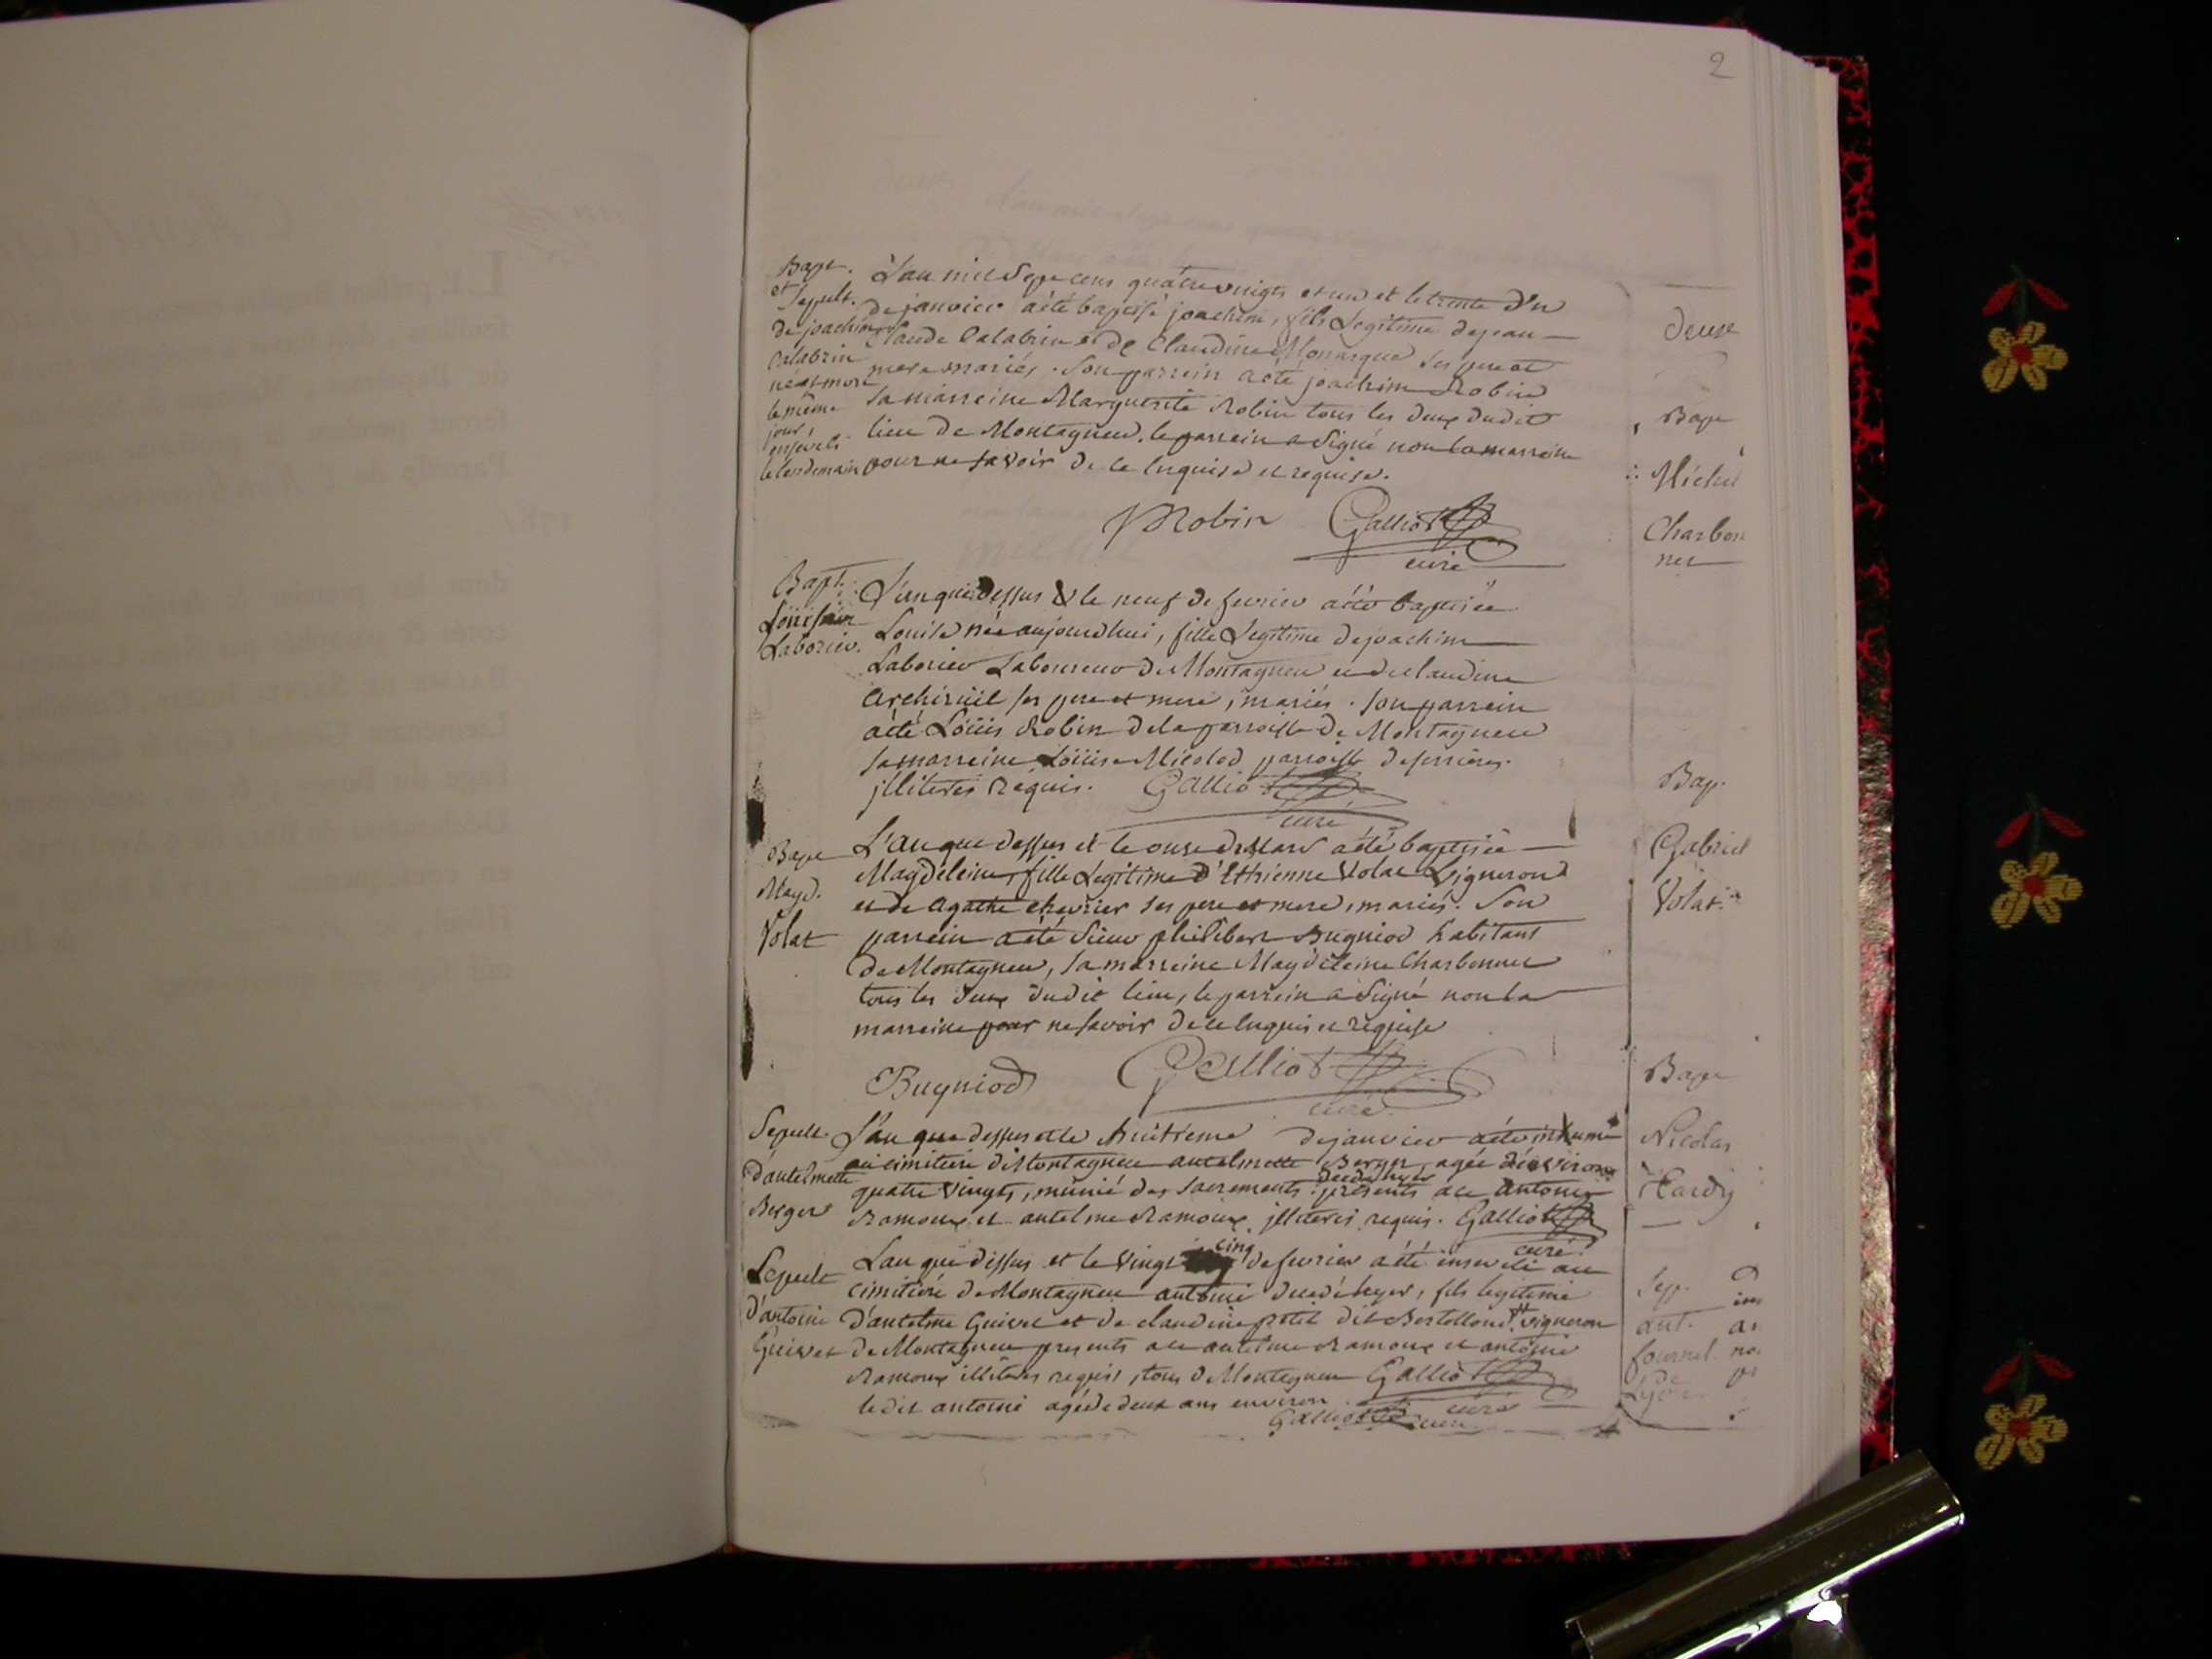 2
Bapt.
et Sepult.
de joachim
Calabrin
né et mort
le même
jour,
enseveli
le lendemain
L'an mil sept cens quatre vingts et un et le trente d'un
de janvier a été baptisé joachim, fils Legitime de jean
Claude Calabrin et de Claudine Monarque ses pere et
mere mariés. Son parrein a été joachim Robin
sa marreine Marguerite Robin tous les deux dudit
lieu de Montagneu. le parrein a signé non la marreine
pour ne savoir de ce Enquise et requise.
Robin Galliot
curé
Bapt.
Laborier.
L'an que dessus & le neuf de fevrier a été baptisée
Louise née aujourdhui, fille Legitime de joachim
Laborier Laboureur de Montagneu et de claudine
ses pere et mere, mariés. son parrein
a été Loüis Robin de la parroisse de Montagneu
sa marreine Loüise parroisse de serrieres.
jlliterés requis. Galliot
curé
Bapt
Magd.
Volat
L'an que dessus et le onze de mars a été baptisée
Magdeleine, fille Legitime d'Ethienne Volat Vigneron
et de Agathe chevrier ses pere et mere, mariés. Son
parrein a été sieur philibert Bugniod habitant
de Montagneu, sa marreine Magdeleine Charbonnet
tous les deux dudit lieu, le parrein a signé non la
marreine pour ne savoir de ce Enquis et requise
Bugniod Galliot
curé
Sepult.
d'antelmette
Berger
L'an que dessus et le huitieme de janvier a été inhumé
au cimitiere de Montagneu antelmette Berger, agée d'environ
quatre vingts, munié des sacrements decedé hyer presents a ce antoine
Ramoux et antelme Ramoux jlliterés requis. Galliot
curé
Sepult
d'antoine
Guivet
L'an que dessus et le vingt cinq de fevrier a été enseveli au
cimitiere de Montagneu antoine decedé hyer, fils legitime
d'antelme Guivet et de claudine petit dit Bertollond vigneron
de Montagneu presents a ce antelme Ramoux et antoine
Ramoux illiterés requis, tous de Montagneu Galliot
curé
le dit antoine agé de deux ans environ.
Galliot curé
deux
Bapt
Michel
Charbon
net
Bap.
Gabriel
Volat.
Bapt
Nicolas
Hardy
Sep.
ant.
fournel